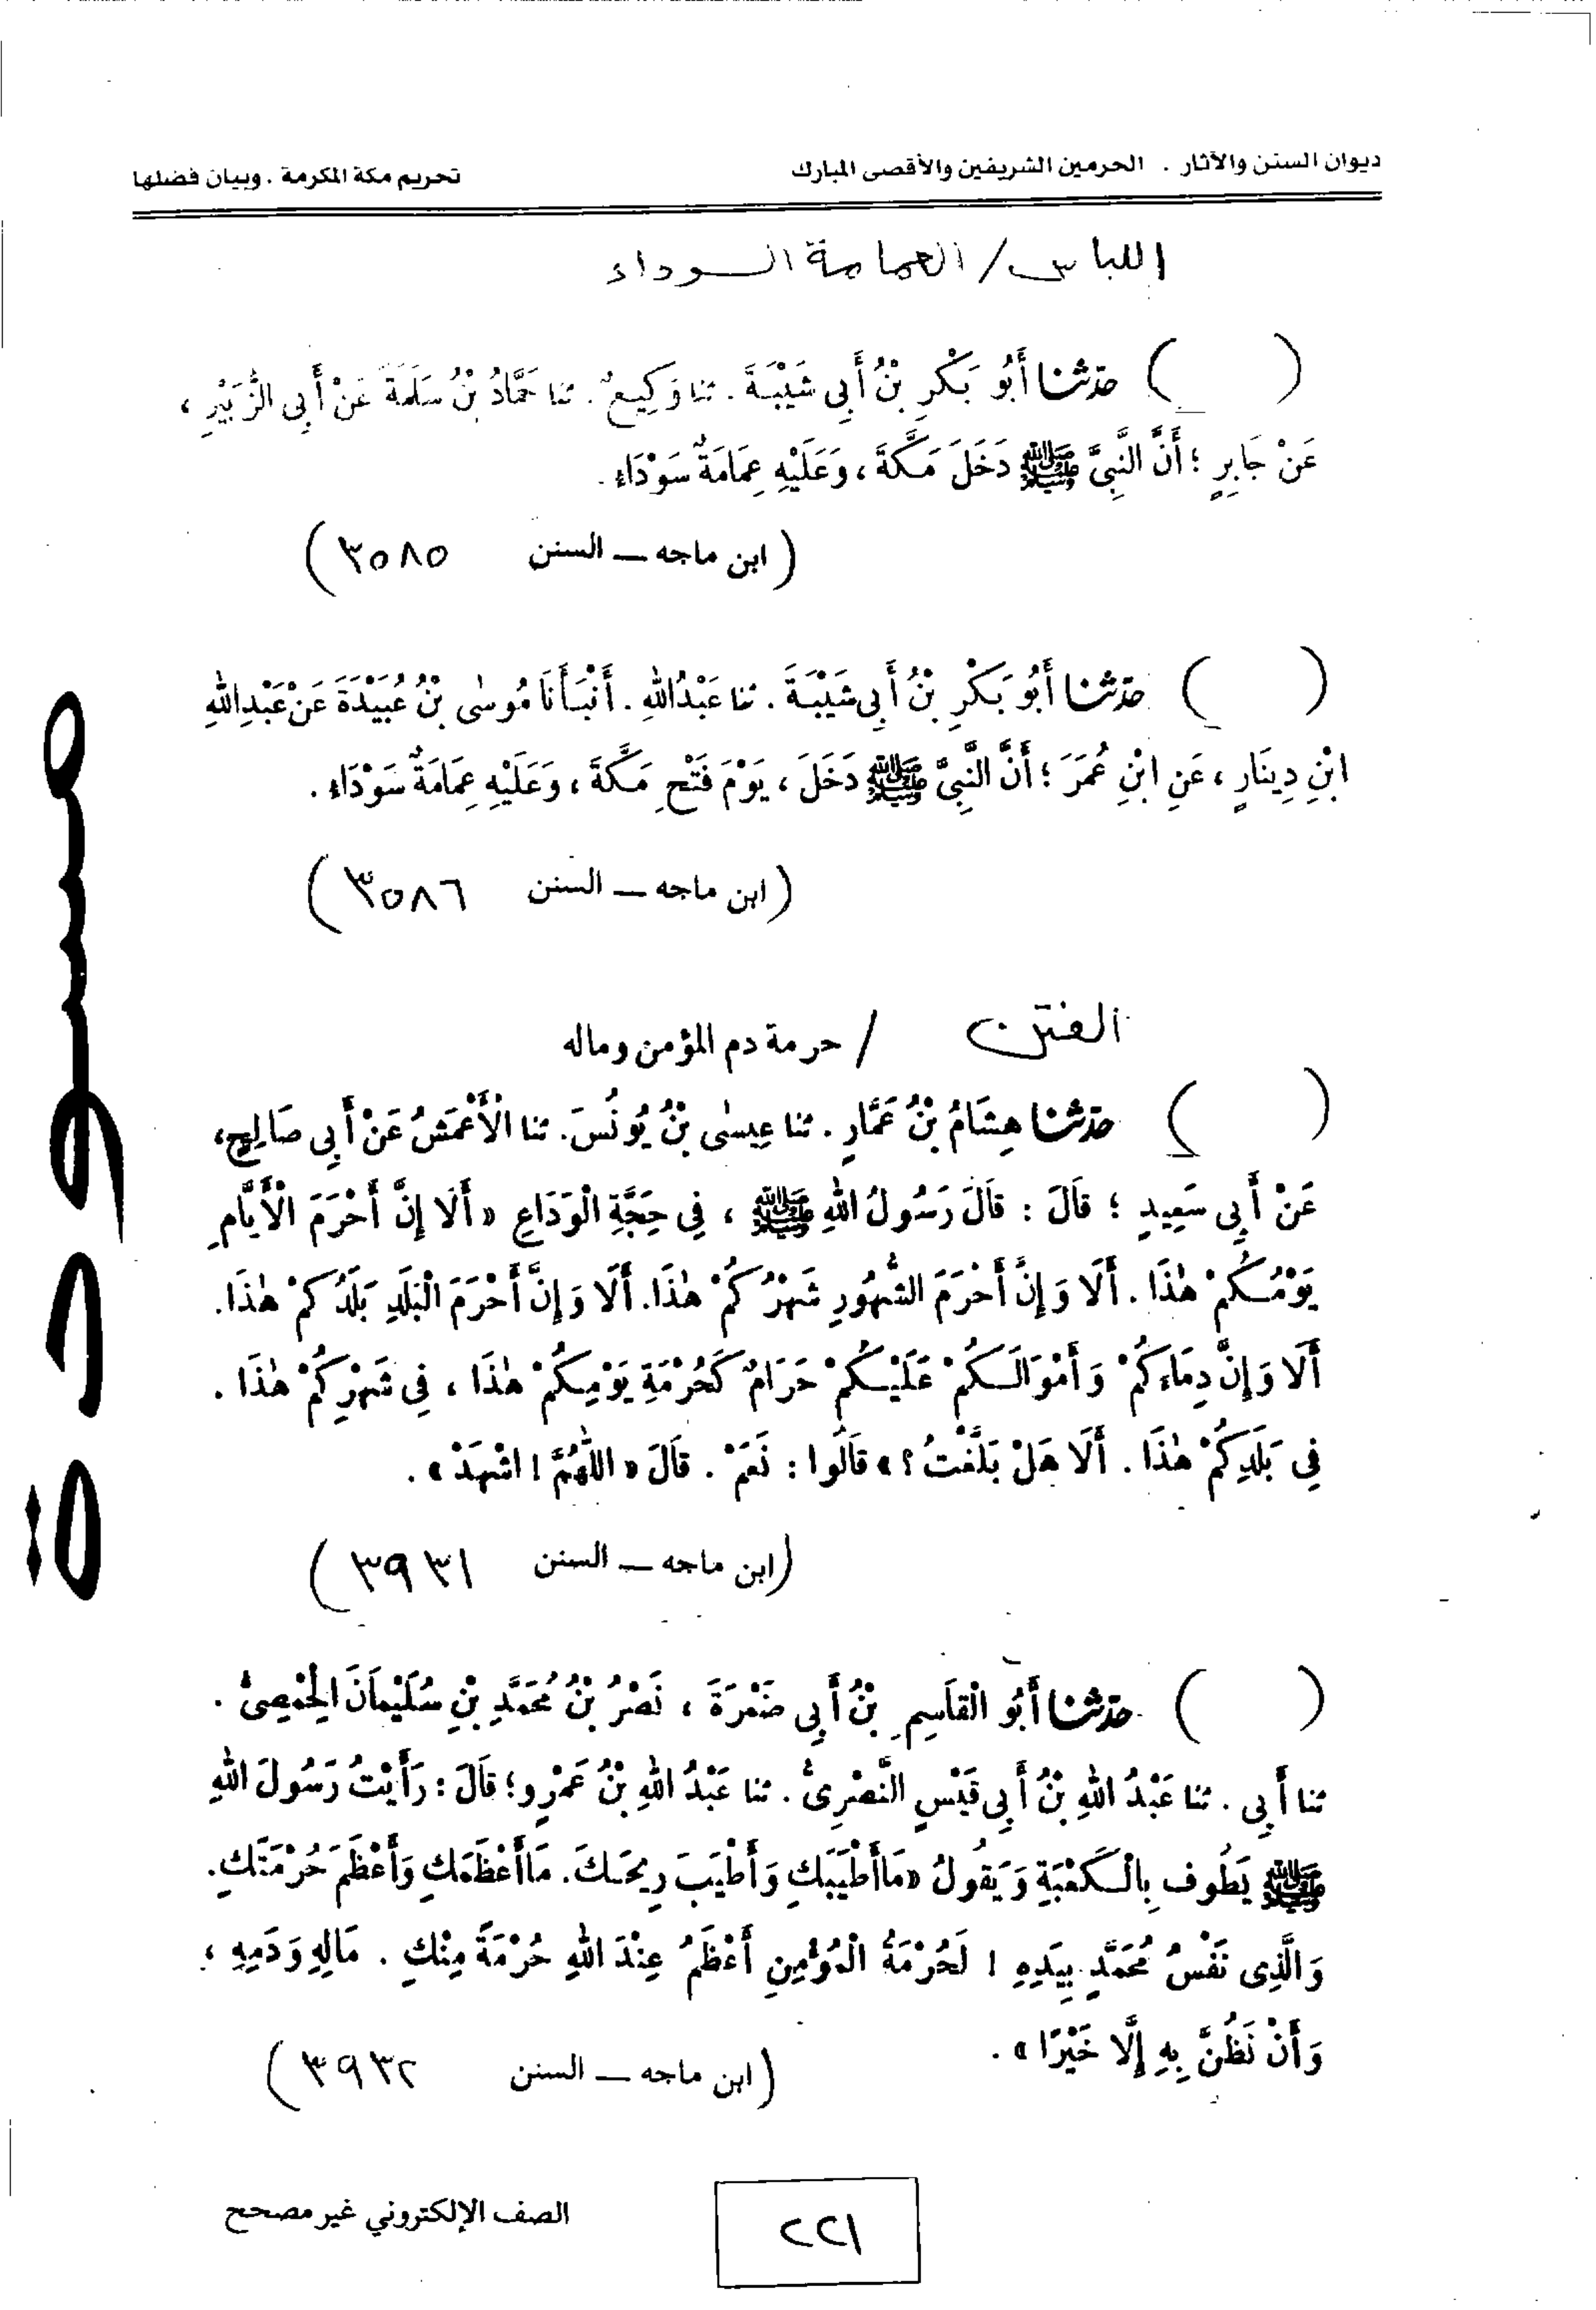 ديوان السنن والآثار . الحرمين الشريفين والأقصى المبارك
تحريم مكة المكرمة . وبيان فضلها
اللباس / العمامة السوداء
( ) حدثنا أَبُو بَكْرِ بْنُ أَبِى شَيْبَةَ . ثنا وَكِيعٌ . ثنا حَمَّادُ بْنُ سَلَمَةَ عَنْ أَبِى الزُّبَيْرِ ،
عَنْ جَابِرٍ ؛ أَنَّ النَّبِىَّ ﷺ دَخَلَ مَكَّةَ ، وَعَلَيْهِ عِمَامَةٌ سَوْدَاء .
( ابن ماجه ــ السنن ٣٥٨٥ )
( ) حدثنا أَبُو بَكْرِ بْنُ أَبِى شَيْبَةَ . ثنا عَبْدُ اللهِ . أَنْبَأَنَا مُوسٰى بْنُ عُبَيْدَةَ عَنْ عَبْدِ اللهِ
ابْنِ دِينَارٍ ، عَنِ ابْنِ عُمَرَ ؛ أَنَّ النَّبِىَّ ﷺ دَخَلَ ، يَوْمَ فَتْحِ مَكَّةَ ، وَعَلَيْهِ عِمَامَةٌ سَوْدَاء .
( ابن ماجه ــ السنن ٣٥٨٦ )
الفتن / حرمة دم المؤمن وماله
( ) حدثنا هِشَامُ بْنُ عَمَّارٍ . ثنا عِيسٰى بْنُ يُونُسَ . ثنا الْأَعْمَشُ عَنْ أَبِى صَالِحٍ ،
عَنْ أَبِى سَعِيدٍ ؛ قَالَ : قَالَ رَسُولُ اللهِ ﷺ ، فِى حِجَّةِ الْوَدَاعِ « أَلَا إِنَّ أَحْرَمَ الْأَيَّامِ
يَوْمُكُمْ هٰذَا . أَلَا وَإِنَّ أَحْرَمَ الشُّهُورِ شَهْرُكُمْ هٰذَا . أَلَا وَإِنَّ أَحْرَمَ الْبَلَدِ بَلَدُكُمْ هٰذَا .
أَلَا وَإِنَّ دِمَاءَكُمْ وَأَمْوَالَكُمْ عَلَيْكُمْ حَرَامٌ كَحُرْمَةِ يَوْمِكُمْ هٰذَا ، فِى شَهْرِكُمْ هٰذَا .
فِى بَلَدِكُمْ هٰذَا . أَلَا هَلْ بَلَّغْتُ ؟ » قَالُوا : نَعَمْ . قَالَ « اللّٰهُمَّ ! اشْهَدْ » .
( ابن ماجه ــ السنن ٣٩٣١ )
( ) حدثنا أَبُو الْقَاسِمِ بْنُ أَبِى ضَمْرَةَ ، نَصْرُ بْنُ مُحَمَّدِ بْنِ سُلَيْمَانَ الْحِمْصِىُّ .
ثنا أَبِى . ثنا عَبْدُ اللهِ بْنُ أَبِى قَيْسٍ النَّصْرِىُّ . ثنا عَبْدُ اللهِ بْنُ عَمْرٍو ؛ قَالَ : رَأَيْتُ رَسُولَ اللهِ
ﷺ يَطُوفُ بِالْكَعْبَةِ وَيَقُولُ « مَا أَطْيَبَكِ وَأَطْيَبَ رِيحَكَ . مَا أَعْظَمَكِ وَأَعْظَمَ حُرْمَتَكِ .
وَالَّذِى نَفْسُ مُحَمَّدٍ بِيَدِهِ ! لَحُرْمَةُ الْمُؤْمِنِ أَعْظَمُ عِنْدَ اللهِ حُرْمَةً مِنْكِ . مَالِهِ وَدَمِهِ ،
وَأَنْ نَظُنَّ بِهِ إِلَّا خَيْرًا » .
( ابن ماجه ــ السنن ٣٩٣٢ )
مسودة
الصف الإلكتروني غير مصحح
٢٢١